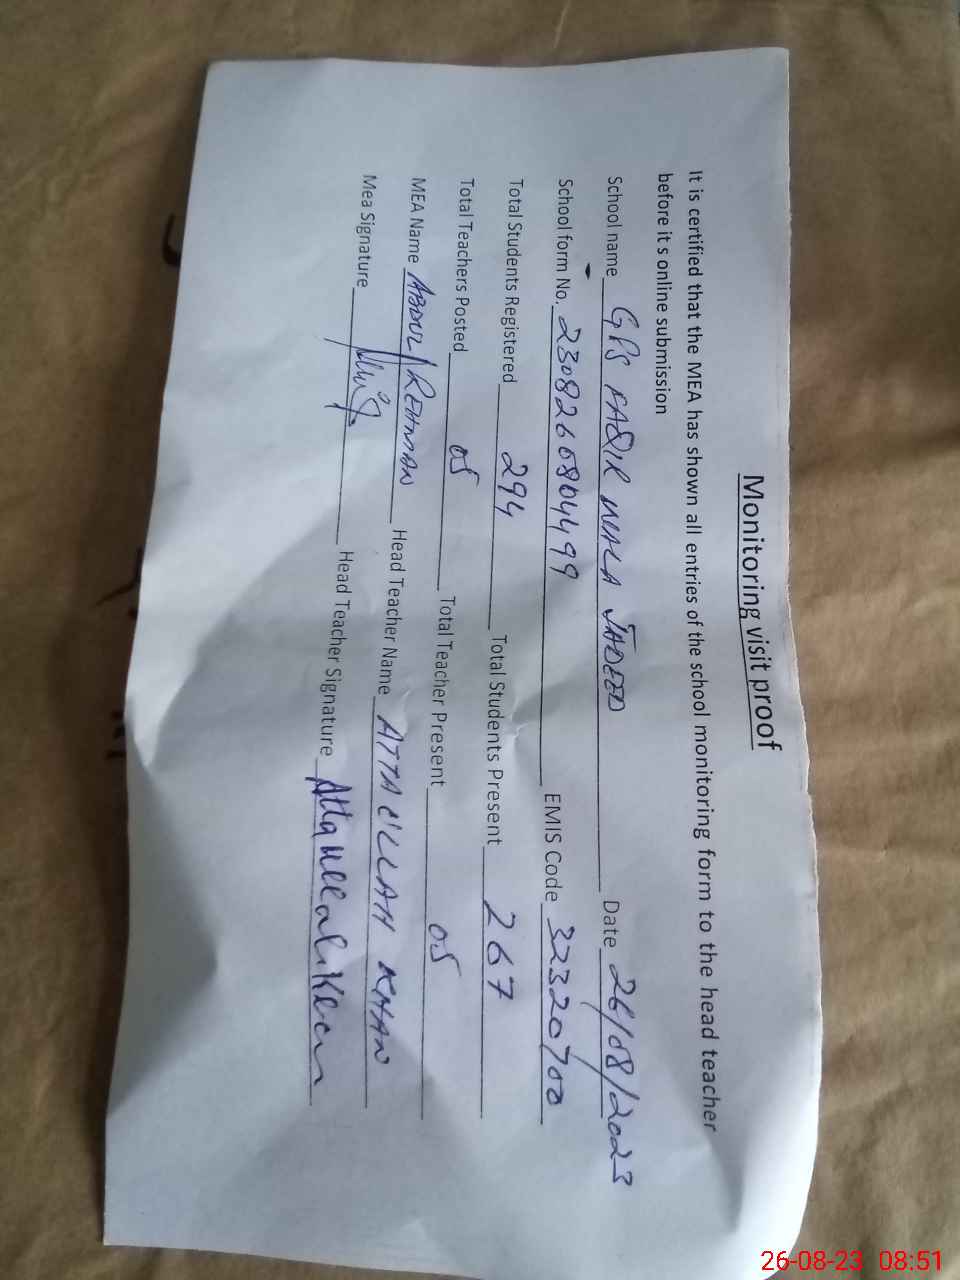 Monitoring visit proof
It is certified that the MEA has shown all entries of the school monitoring form to the head teacher
before it s online submission
School name GPS FAQIR WALA JADEED Date 26/08/2023
School form No. 2308260804499 EMIS Code 32320700
Total Students Registered 294 Total Students Present 267
Total Teachers Posted 05 Total Teacher Present 05
MEA Name ABDUL REHMAN Head Teacher Name ATTA ULLAH KHAN
Mea Signature Head Teacher Signature Attaullah Khan
26-08-23 08:51